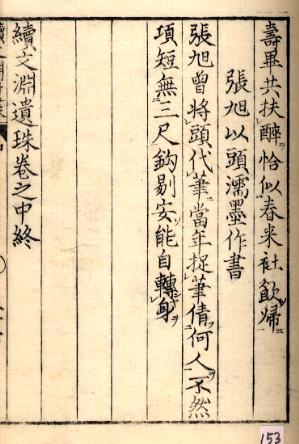 壽畢共扶醉恰似春来社飲歸
張旭以頭濡墨作書
張旭曽將頭代筆當年捉筆倩何人不然
項短無三尺鈎剔安能自轉身
續文淵遺珠卷之中終
153